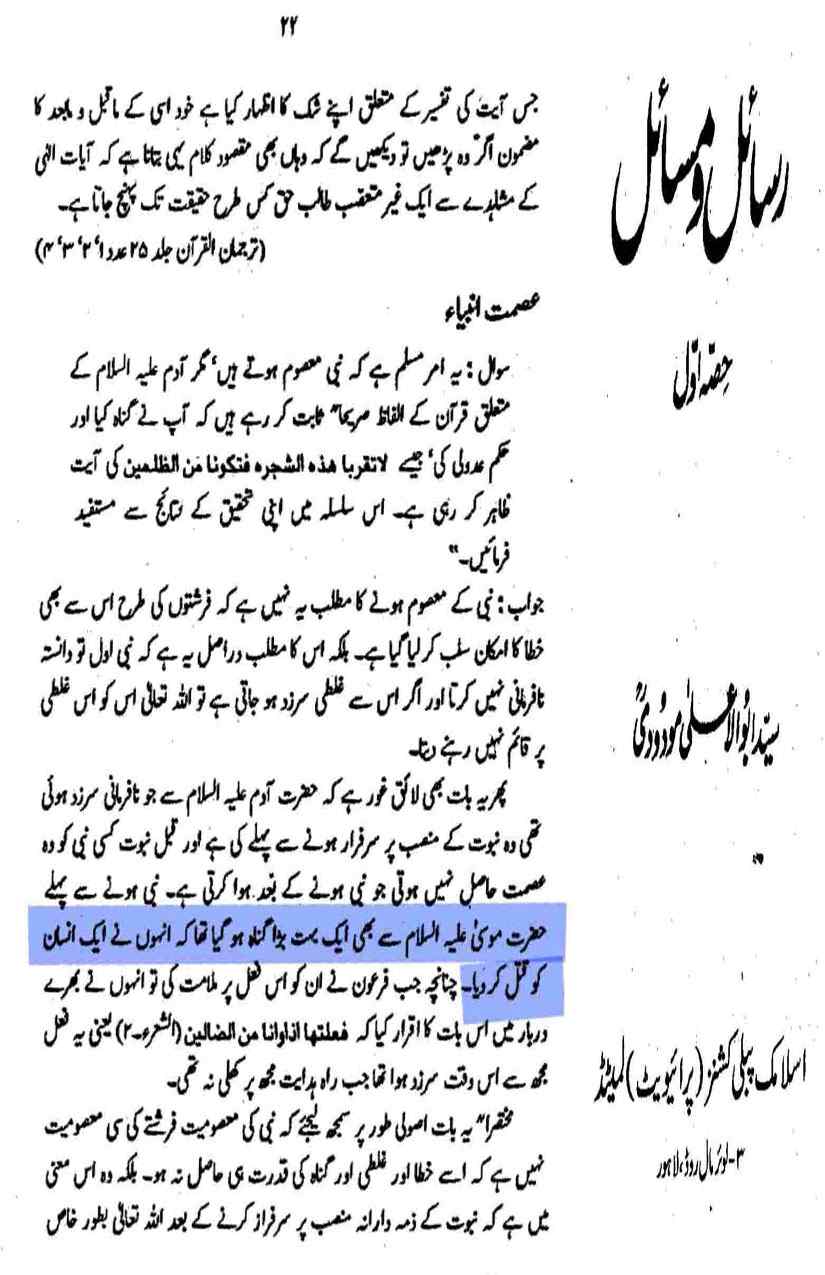 ۲۴
جس آیت کی تفسیر کے متعلق اپنے شک کا اظہار کیا ہے خود اسی کے ماقبل و مابعد کا
مضمون اگر وہ پڑھیں تو دیکھیں گے کہ وہاں بھی مقصود کلام یہی بتانا ہے کہ آیات الٰہی
کے مشاہدے سے ایک غیر متعصب طالب حق کس طرح حقیقت تک پہنچ جاتا ہے۔
(ترجمان القرآن جلد ۲۵ عدد ۱، ۲، ۳، ۴)
عصمت انبیاء
سوال : یہ امر مسلم ہے کہ نبی معصوم ہوتے ہیں، مگر آدم علیہ السلام کے
متعلق قرآن کے الفاظ صریحاً ثابت کر رہے ہیں کہ آپ نے گناہ کیا اور
حکم عدولی کی، جیسے لاتقربا هذه الشجره فتكونا من الظلمين کی آیت
ظاہر کر رہی ہے۔ اس سلسلہ میں اپنی تحقیق کے نتائج سے مستفید
فرمائیں۔"
جواب : نبی کے معصوم ہونے کا مطلب یہ نہیں ہے کہ فرشتوں کی طرح اس سے بھی
خطا کا امکان سلب کر لیا گیا ہے۔ بلکہ اس کا مطلب دراصل یہ ہے کہ نبی اول تو دانستہ
نافرمانی نہیں کرتا اور اگر اس سے غلطی سرزد ہو جاتی ہے تو اللہ تعالیٰ اس کو اس غلطی
پر قائم نہیں رہنے دیتا۔
پھر یہ بات بھی لائق غور ہے کہ حضرت آدم علیہ السلام سے جو نافرمانی سرزد ہوئی
تھی وہ نبوت کے منصب پر سرفراز ہونے سے پہلے کی ہے اور قبل نبوت کسی نبی کو وہ
عصمت حاصل نہیں ہوتی جو نبی ہونے کے بعد ہوا کرتی ہے۔ نبی ہونے سے پہلے
حضرت موسیٰ علیہ السلام سے بھی ایک بہت بڑا گناہ ہو گیا تھا کہ انہوں نے ایک انسان
کو قتل کر دیا۔ چنانچہ جب فرعون نے ان کو اس فعل پر ملامت کی تو انہوں نے بھرے
دربار میں اس بات کا اقرار کیا کہ فعلتها اذاوانا من الضالين (الشعراء۔۲) یعنی یہ فعل
مجھ سے اس وقت سرزد ہوا تھا جب راہ ہدایت مجھ پر کھلی نہ تھی۔
مختصراً یہ بات اصولی طور پر سمجھ لیجئے کہ نبی کی معصومیت فرشتے کی سی معصومیت
نہیں ہے کہ اسے خطا اور غلطی اور گناہ کی قدرت ہی حاصل نہ ہو۔ بلکہ وہ اس معنی
میں ہے کہ نبوت کے ذمہ دارانہ منصب پر سرفراز کرنے کے بعد اللہ تعالیٰ بطور خاص
رسائل و مسائل
حصّہ اوّل
سیّد ابُوالاعلیٰ مودُودیؒ
اسلامک پبلی کشنز (پرائیویٹ) لمیٹڈ
۳-لوئر مال روڈ، لاہور